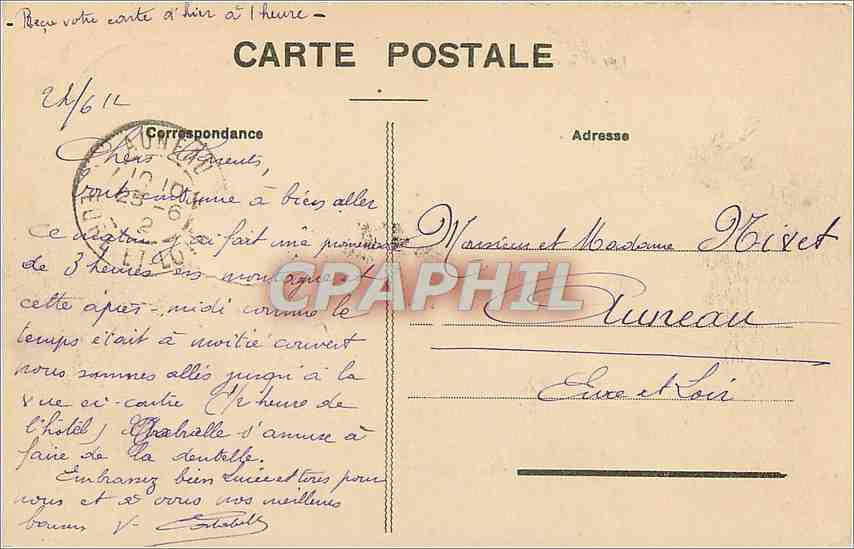 - Reçu votre carte d'hier à 1 heure -
CARTE POSTALE
24/6 12
Correspondance
Adresse
AUNEAU
25-6
EURE ET LOIR
Chers Parents,
tout continue à bien aller
Ce matin j'ai fait une promenade
de 3 heures en montagne et
cette après-midi comme le
temps était à moitié couvert
nous sommes allés jusqu'à la
vue ci-contre (1/2 heure de
l'hôtel) s'amuse à
faire de la dentelle.
Embrassez bien pour
nous et à vous nos meilleurs
baisers
Monsieur et Madame
Auneau
Eure et Loir
CPAPHIL